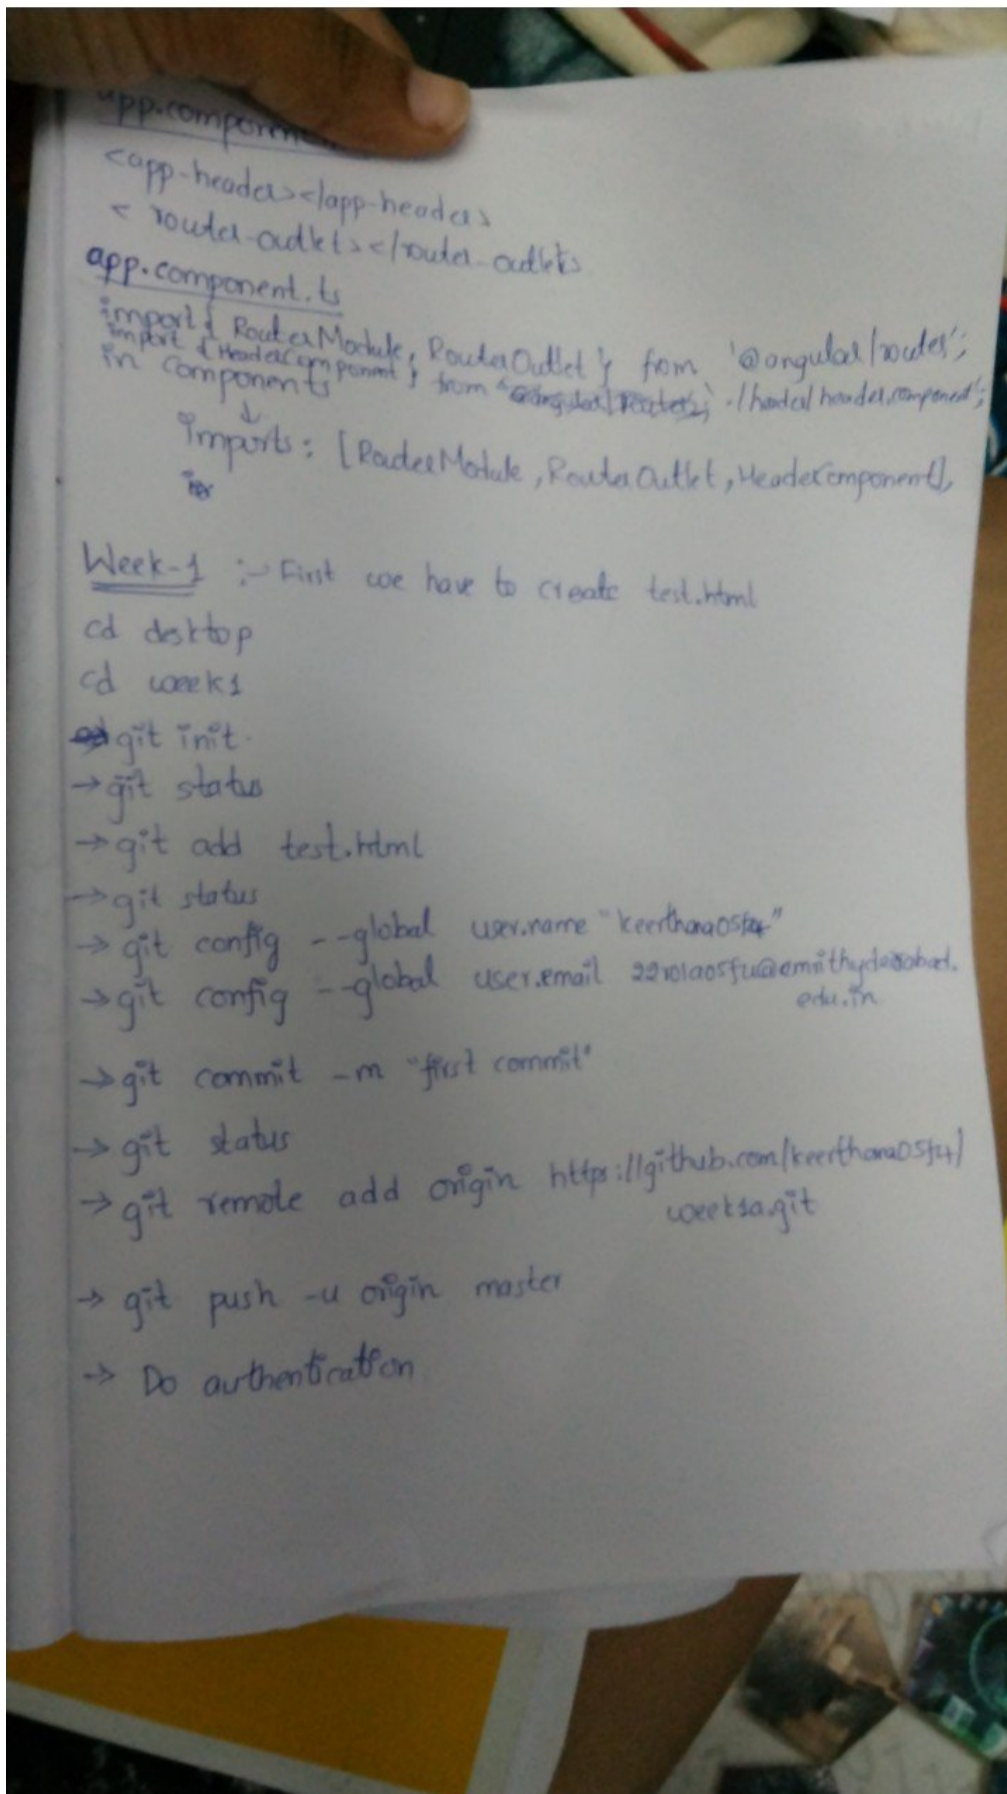 app.component
<app-header></app-header>
<router-outlet></router-outlet>
app.component.ts
import { RouterModule, RouterOutlet } from '@angular/router';
import { HeaderComponent } from './header/header.component';
in components
↓
imports: [RouterModule, RouterOutlet, HeaderComponent],
Week-1 :- First we have to create test.html
cd desktop
cd week1
git init.
→ git status
→ git add test.html
→ git status
→ git config --global user.name "keerthana05f4"
→ git config --global user.email
edu.in
→ git commit -m "first commit"
→ git status
→ git remote add origin https://github.com/keerthana05f4/
week1a.git
→ git push -u origin master
→ Do authentication